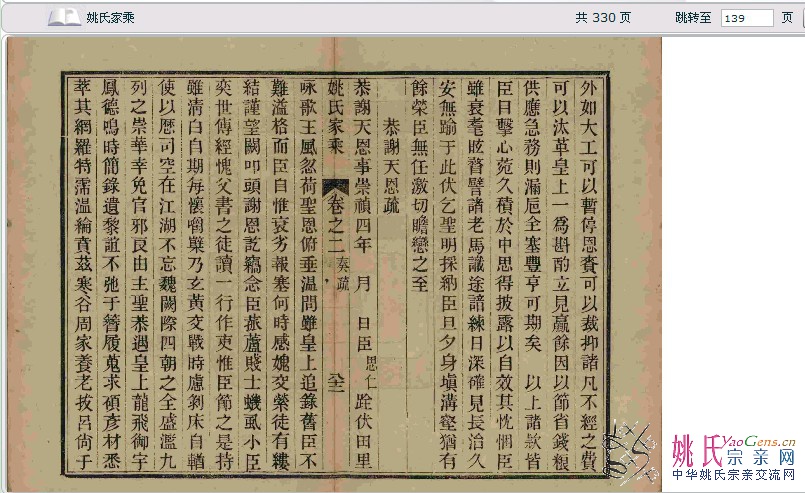 姚氏家乘
共 330 页
跳转至 139 页
外如大工可以暫停恩賚可以裁抑諸凡不經之費
可以汰革皇上一為斟酌立見贏餘因以節省錢糧
供應急務則漏巵全塞豐亨可期矣 以上諸款皆
臣目擊心菀久積於中思得披露以自效其忱悃臣
雖衰耄眩瞀譬諸老馬識途諳練日深確見長治久
安無踰于此伏乞聖明採納臣旦夕身塡溝壑猶有
餘榮臣無任激切瞻戀之至
恭謝天恩疏
恭謝天恩事崇禎四年 月 日臣思仁跧伏田里
姚氏家乘 卷之二 奏疏 全
咏歌王風忽荷聖恩俯垂温問雖皇上追錄舊臣不
難溢格而臣自惟衰劣報塞何時感媿交縈徒有縷
結謹望闕叩頭謝恩訖竊念臣菰蘆賤士蟣虱小臣
奕世傳經愧父書之徒讀一行作吏惟臣節之是持
雖淸白自期每懷嚼櫱乃玄黃交戰時慮剝床自輶
使以厯司空在江湖不忘魏闕際四朝之全盛濫九
列之崇華幸免官邪良由主聖恭遇皇上龍飛御宇
鳳德鳴時簡錄遺黎誼不弛于簪履蒐求碩彥材悉
萃其網羅特霈温綸賁茲寒谷周家養老拔呂尙于
姚氏 YaoGens.cn
宗亲网
中华姚氏宗亲交流网